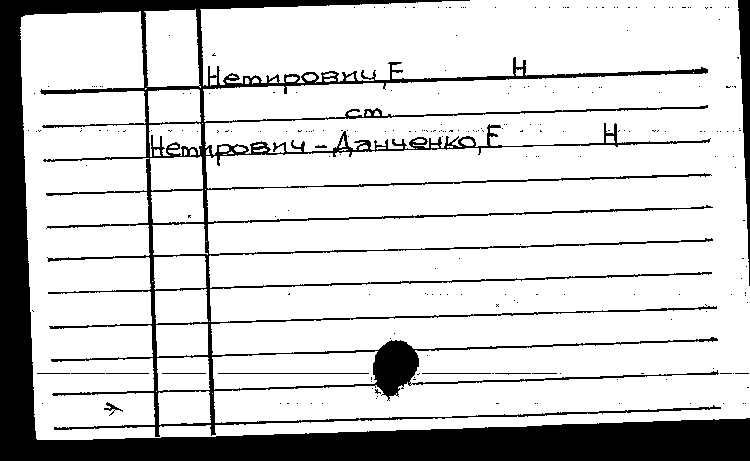 Немирович, Е Н
ст.
Немирович-Данченко, Е Н